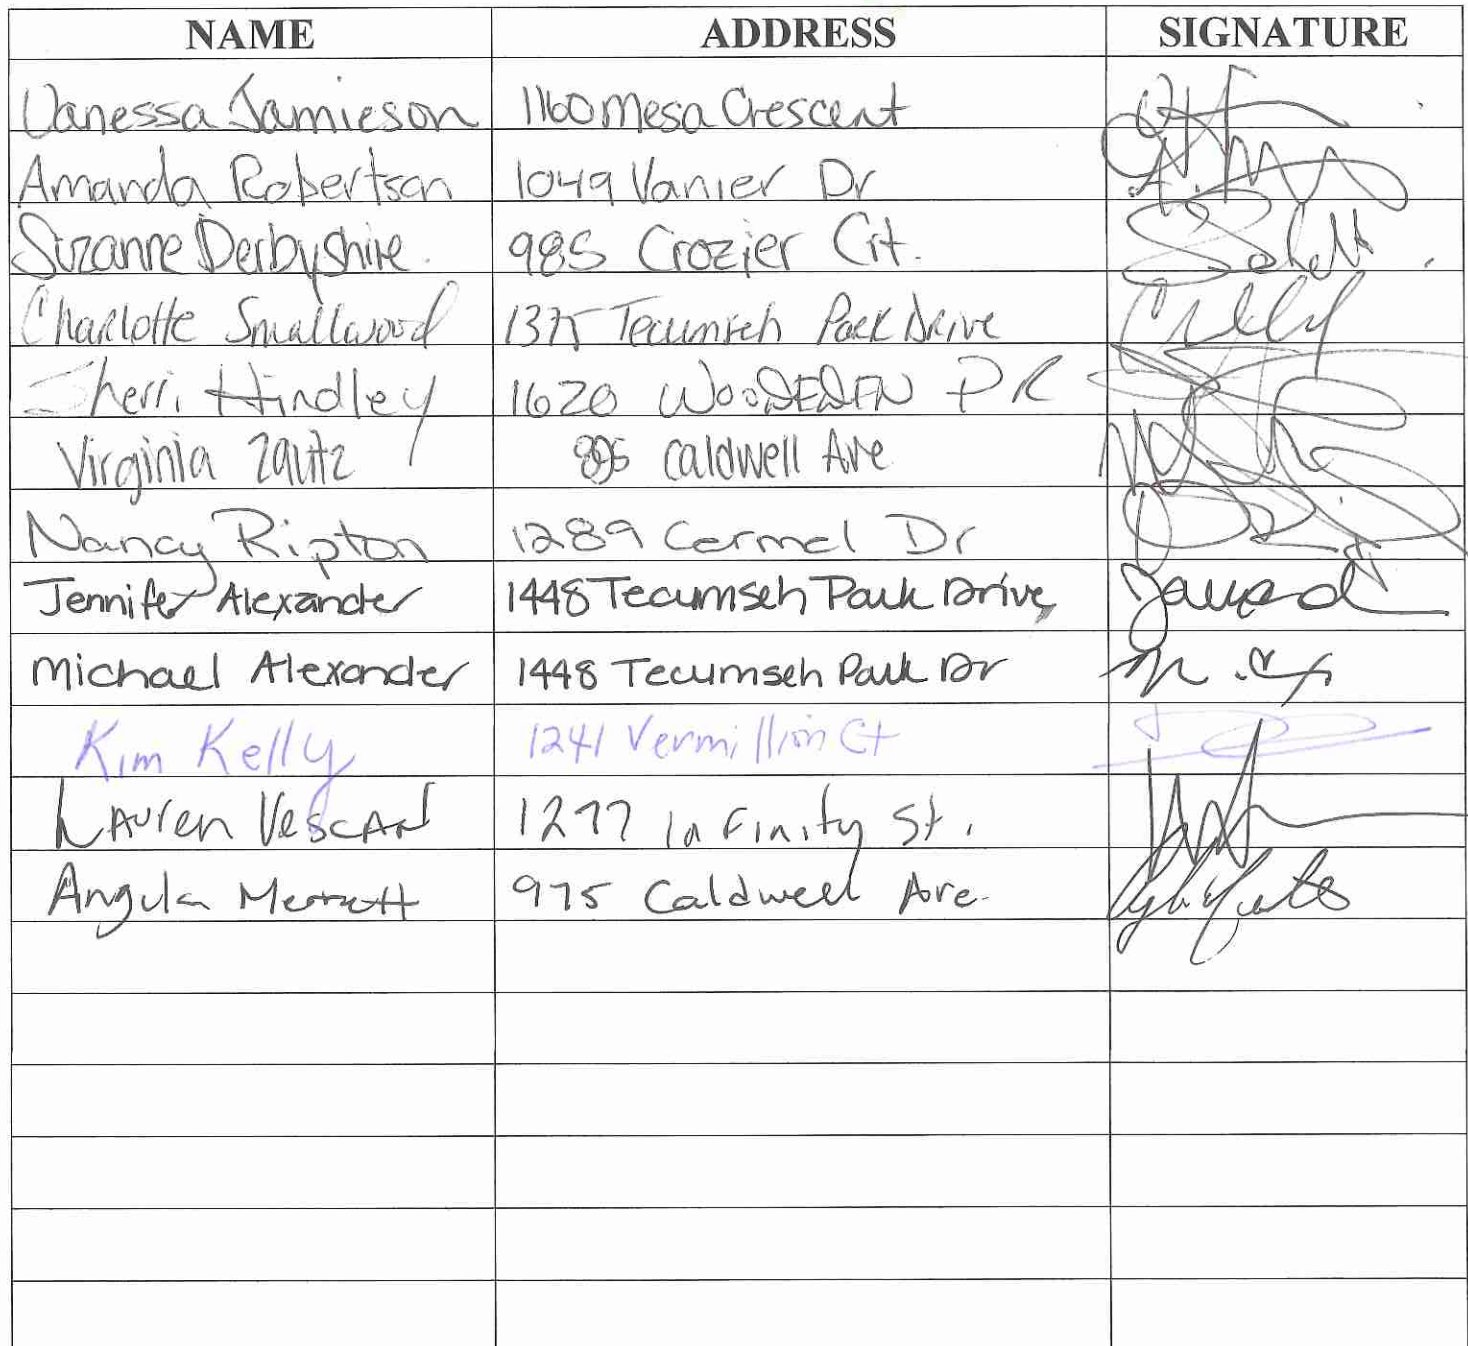 NAME ADDRESS SIGNATURE
Vanessa Jamieson 1160 Mesa Crescent
Amanda Robertson 1049 Vanier Dr
Suzanne Derbyshire. 985 Crozier Crt.
Charlotte Smallwood 1375 Tecumseh Park Drive
Sheri Hindley 1620 WOODEDEN DR
Virginia Zautz 895 Caldwell Ave
Nancy Ripton 1289 Cermel Dr
Jennifer Alexander 1448 Tecumseh Park Drive,
Michael Alexander 1448 Tecumseh Park Dr
Kim Kelly 1241 Vermillion Ct
Lauren Vescan 1277 Infinity St.
Angela 975 Caldwell Ave.